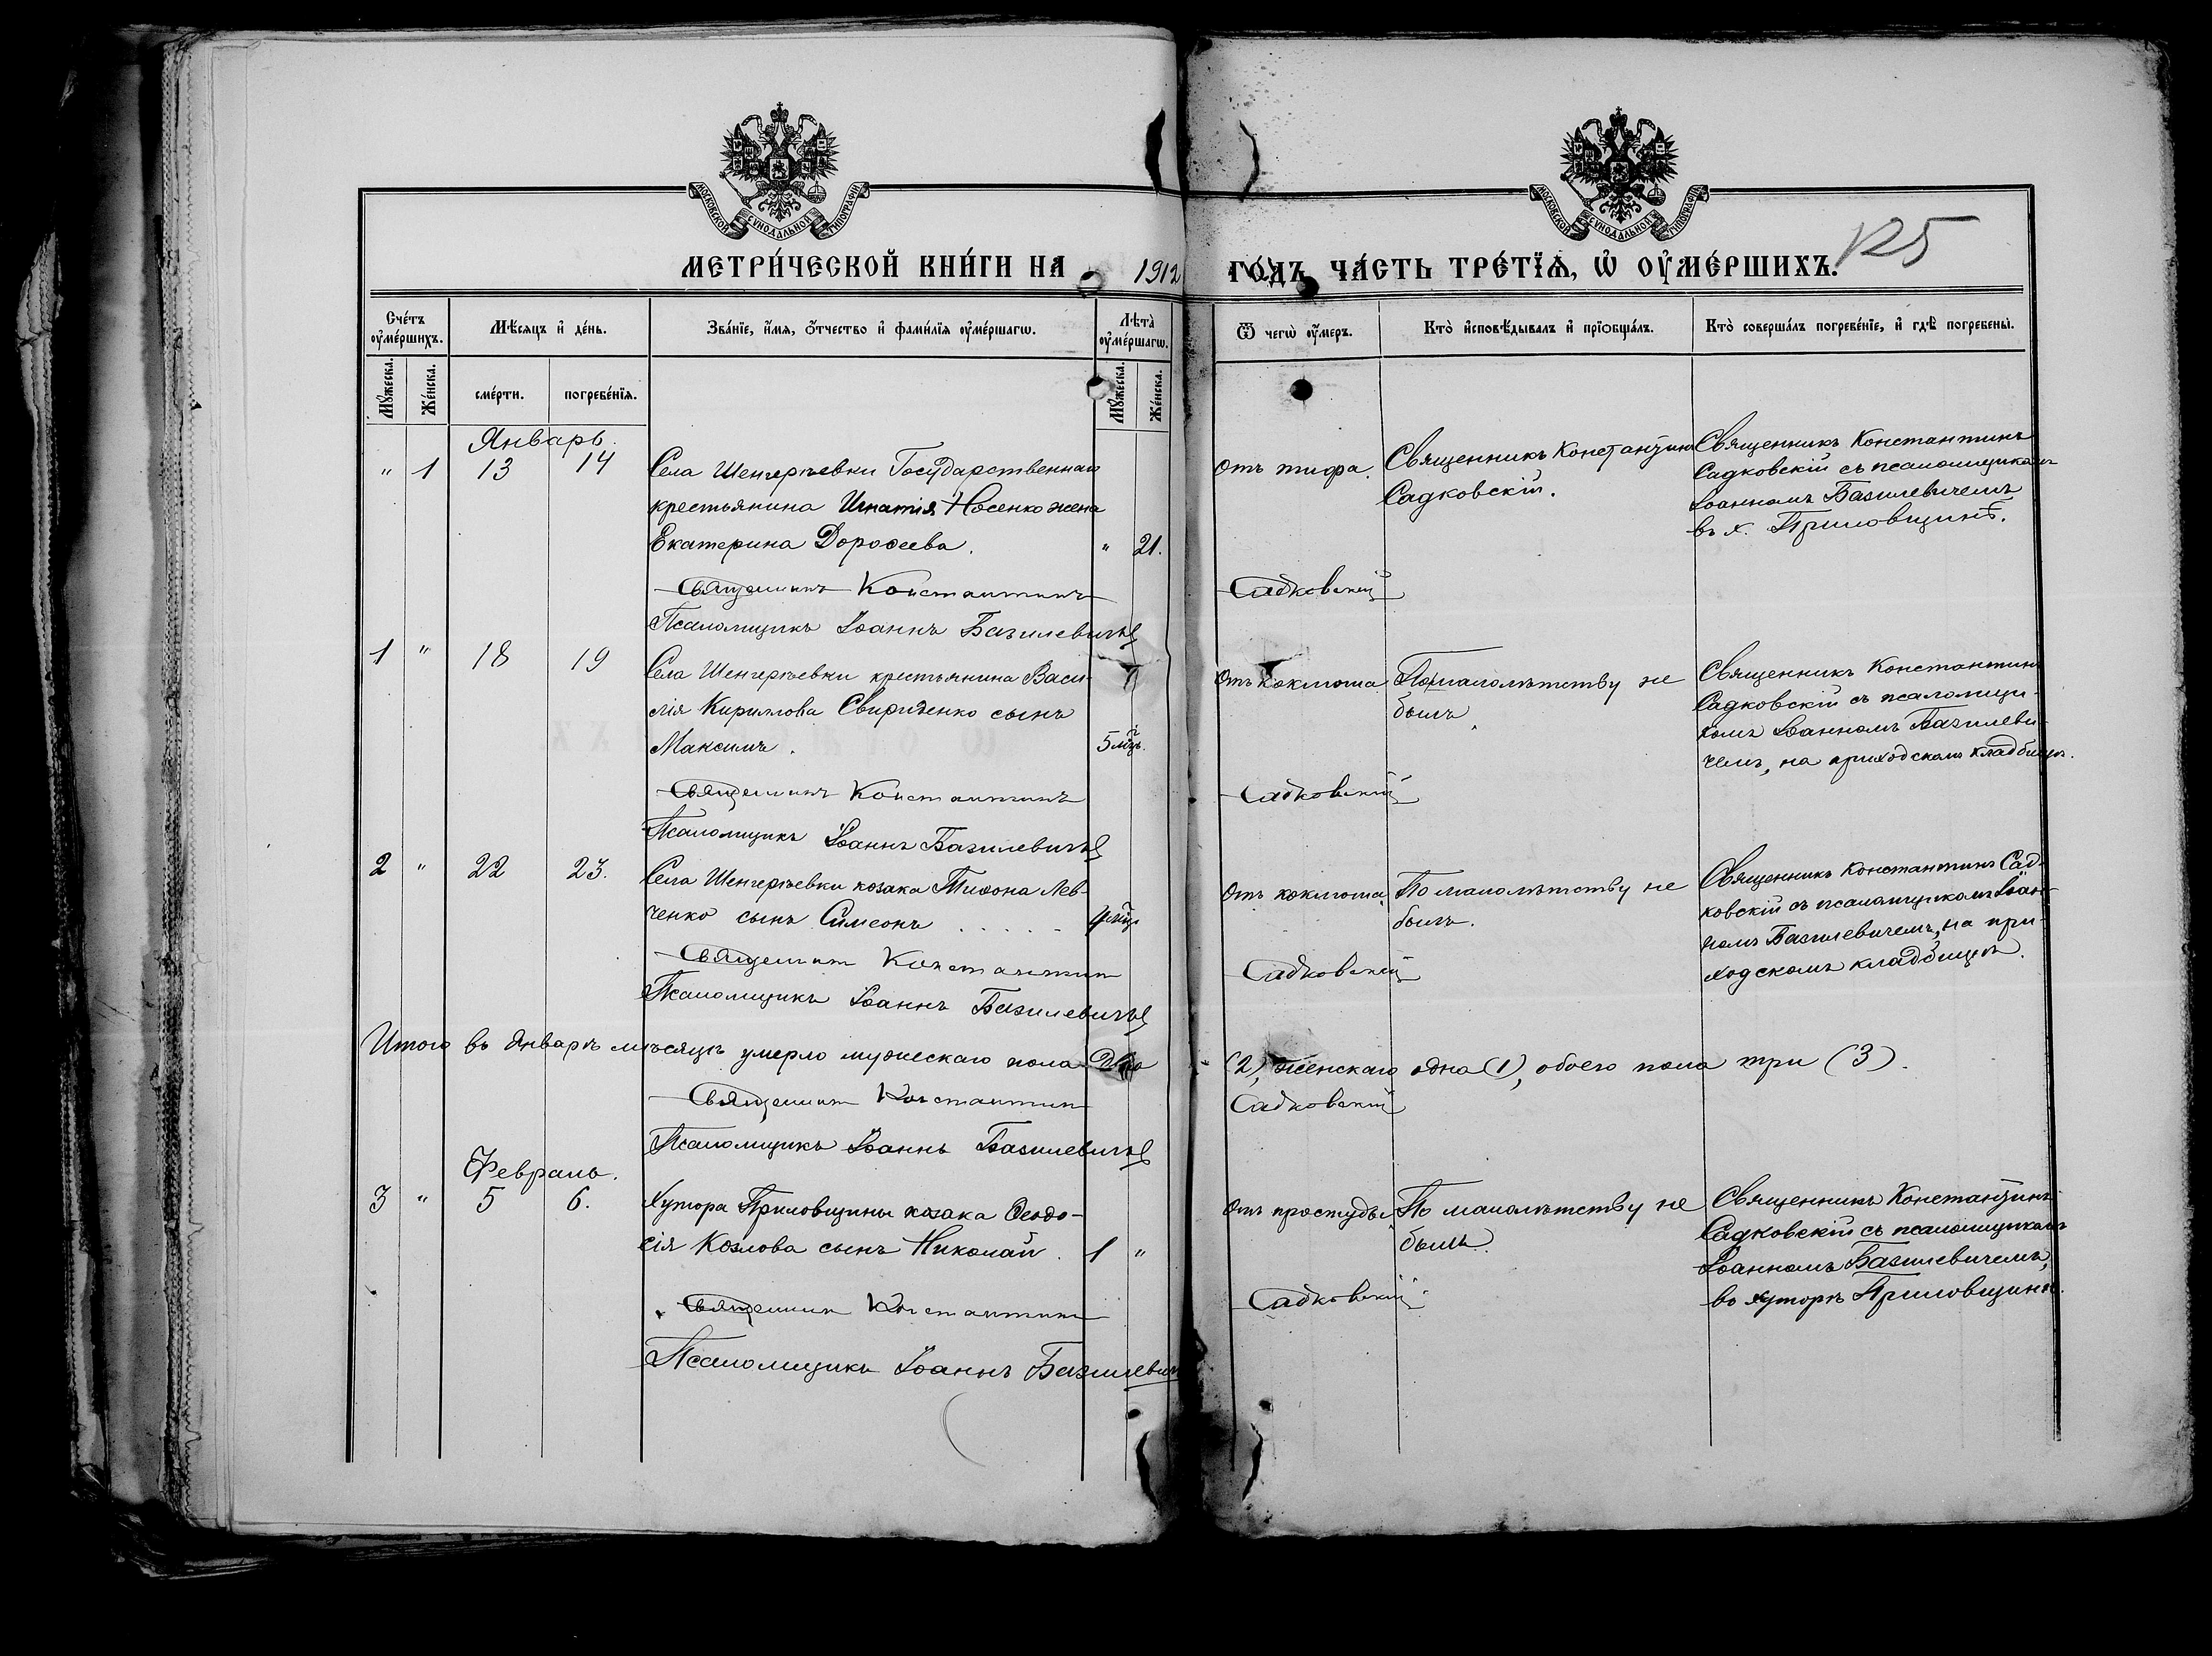 МОСКОВСКОЙ СѴНОДАЛЬНОЙ ТИПОГРАФІИ
МОСКОВСКОЙ СѴНОДАЛЬНОЙ ТИПОГРАФІИ
МЕТРИ́ЧЕСКОЙ КНИ́ГИ НА 1912 ГО́ДЪ ЧА́СТЬ ТРЕ́ТІѦ, Ѡ ОУ҆МЕ́РШИХЪ. 125
Сче́тъ оу҆ме́ршихъ.
Мѣ́сяцъ и҆ де́нь.
Зва́нїе, и҆́мѧ, ѻ҆́тчество и҆ фами́лїѧ оу҆ме́ршагѡ.
Лѣ̀та оу҆ме́ршагѡ.
Ѿ чегѡ̀ оу҆́меръ.
Кто̀ и҆сповѣ́дывалъ и҆ прїобща́лъ.
Кто̀ соверша́лъ погребе́нїе, и҆ гдѣ̀ погребены̀.
Мꙋ́жеска.
Же́нска.
сме́рти.
погребе́нїѧ.
Мꙋ́жеска.
Же́нска.
Январь.
" 1 13 14
Села Шенгерѣевки Государственнаго
крестьянина Игнатія Носенко жена
Екатерина Дороѳеева. " 21.
Отъ тифа.
Священникъ Константинъ
Садковскій.
Священникъ Константинъ
Садковскій съ псаломщикомъ
Іоанномъ Базилевичемъ
въ х. Приловщинѣ.
Священникъ Константинъ Садковскій
Псаломщикъ Іоаннъ Базилевичъ
1 " 18 19
Села Шенгерѣевки крестьянина Васи-
лія Кириллова Свириденко сынъ
Максимъ. 5 мѣц.
Отъ коклюша
По малолѣтству не
былъ.
Священникъ Константинъ
Садковскій съ псаломщи-
комъ Іоанномъ Базилеви-
чемъ, на приходскомъ кладбищѣ.
Священникъ Константинъ Садковскій
Псаломщикъ Іоаннъ Базилевичъ
2 " 22 23.
Села Шенгерѣевки козака Тихона Лев-
ченко сынъ Симеонъ . . . . .
Отъ коклюша.
По малолѣтству не
былъ.
Священникъ Константинъ Сад-
ковскій съ псаломщикомъ Іоан-
номъ Базилевичемъ, на при-
ходскомъ кладбищѣ.
Священникъ Константинъ Садковскій
Псаломщикъ Іоаннъ Базилевичъ
Итого въ Январѣ мѣсяцѣ умерло мужескаго пола два (2), женскаго одна (1), обоего пола три (3).
Священникъ Константинъ Садковскій
Псаломщикъ Іоаннъ Базилевичъ
Февраль.
3 " 5 6.
Хутора Приловщины козака Ѳеодо-
сія Козлова сынъ Николай. 1 "
Отъ простуды
По малолѣтству не
былъ.
Священникъ Константинъ
Садковскій съ псаломщикомъ
Іоанномъ Базилевичемъ,
въ хуторѣ Приловщинѣ.
Священникъ Константинъ Садковскій
Псаломщикъ Іоаннъ Базилевичъ